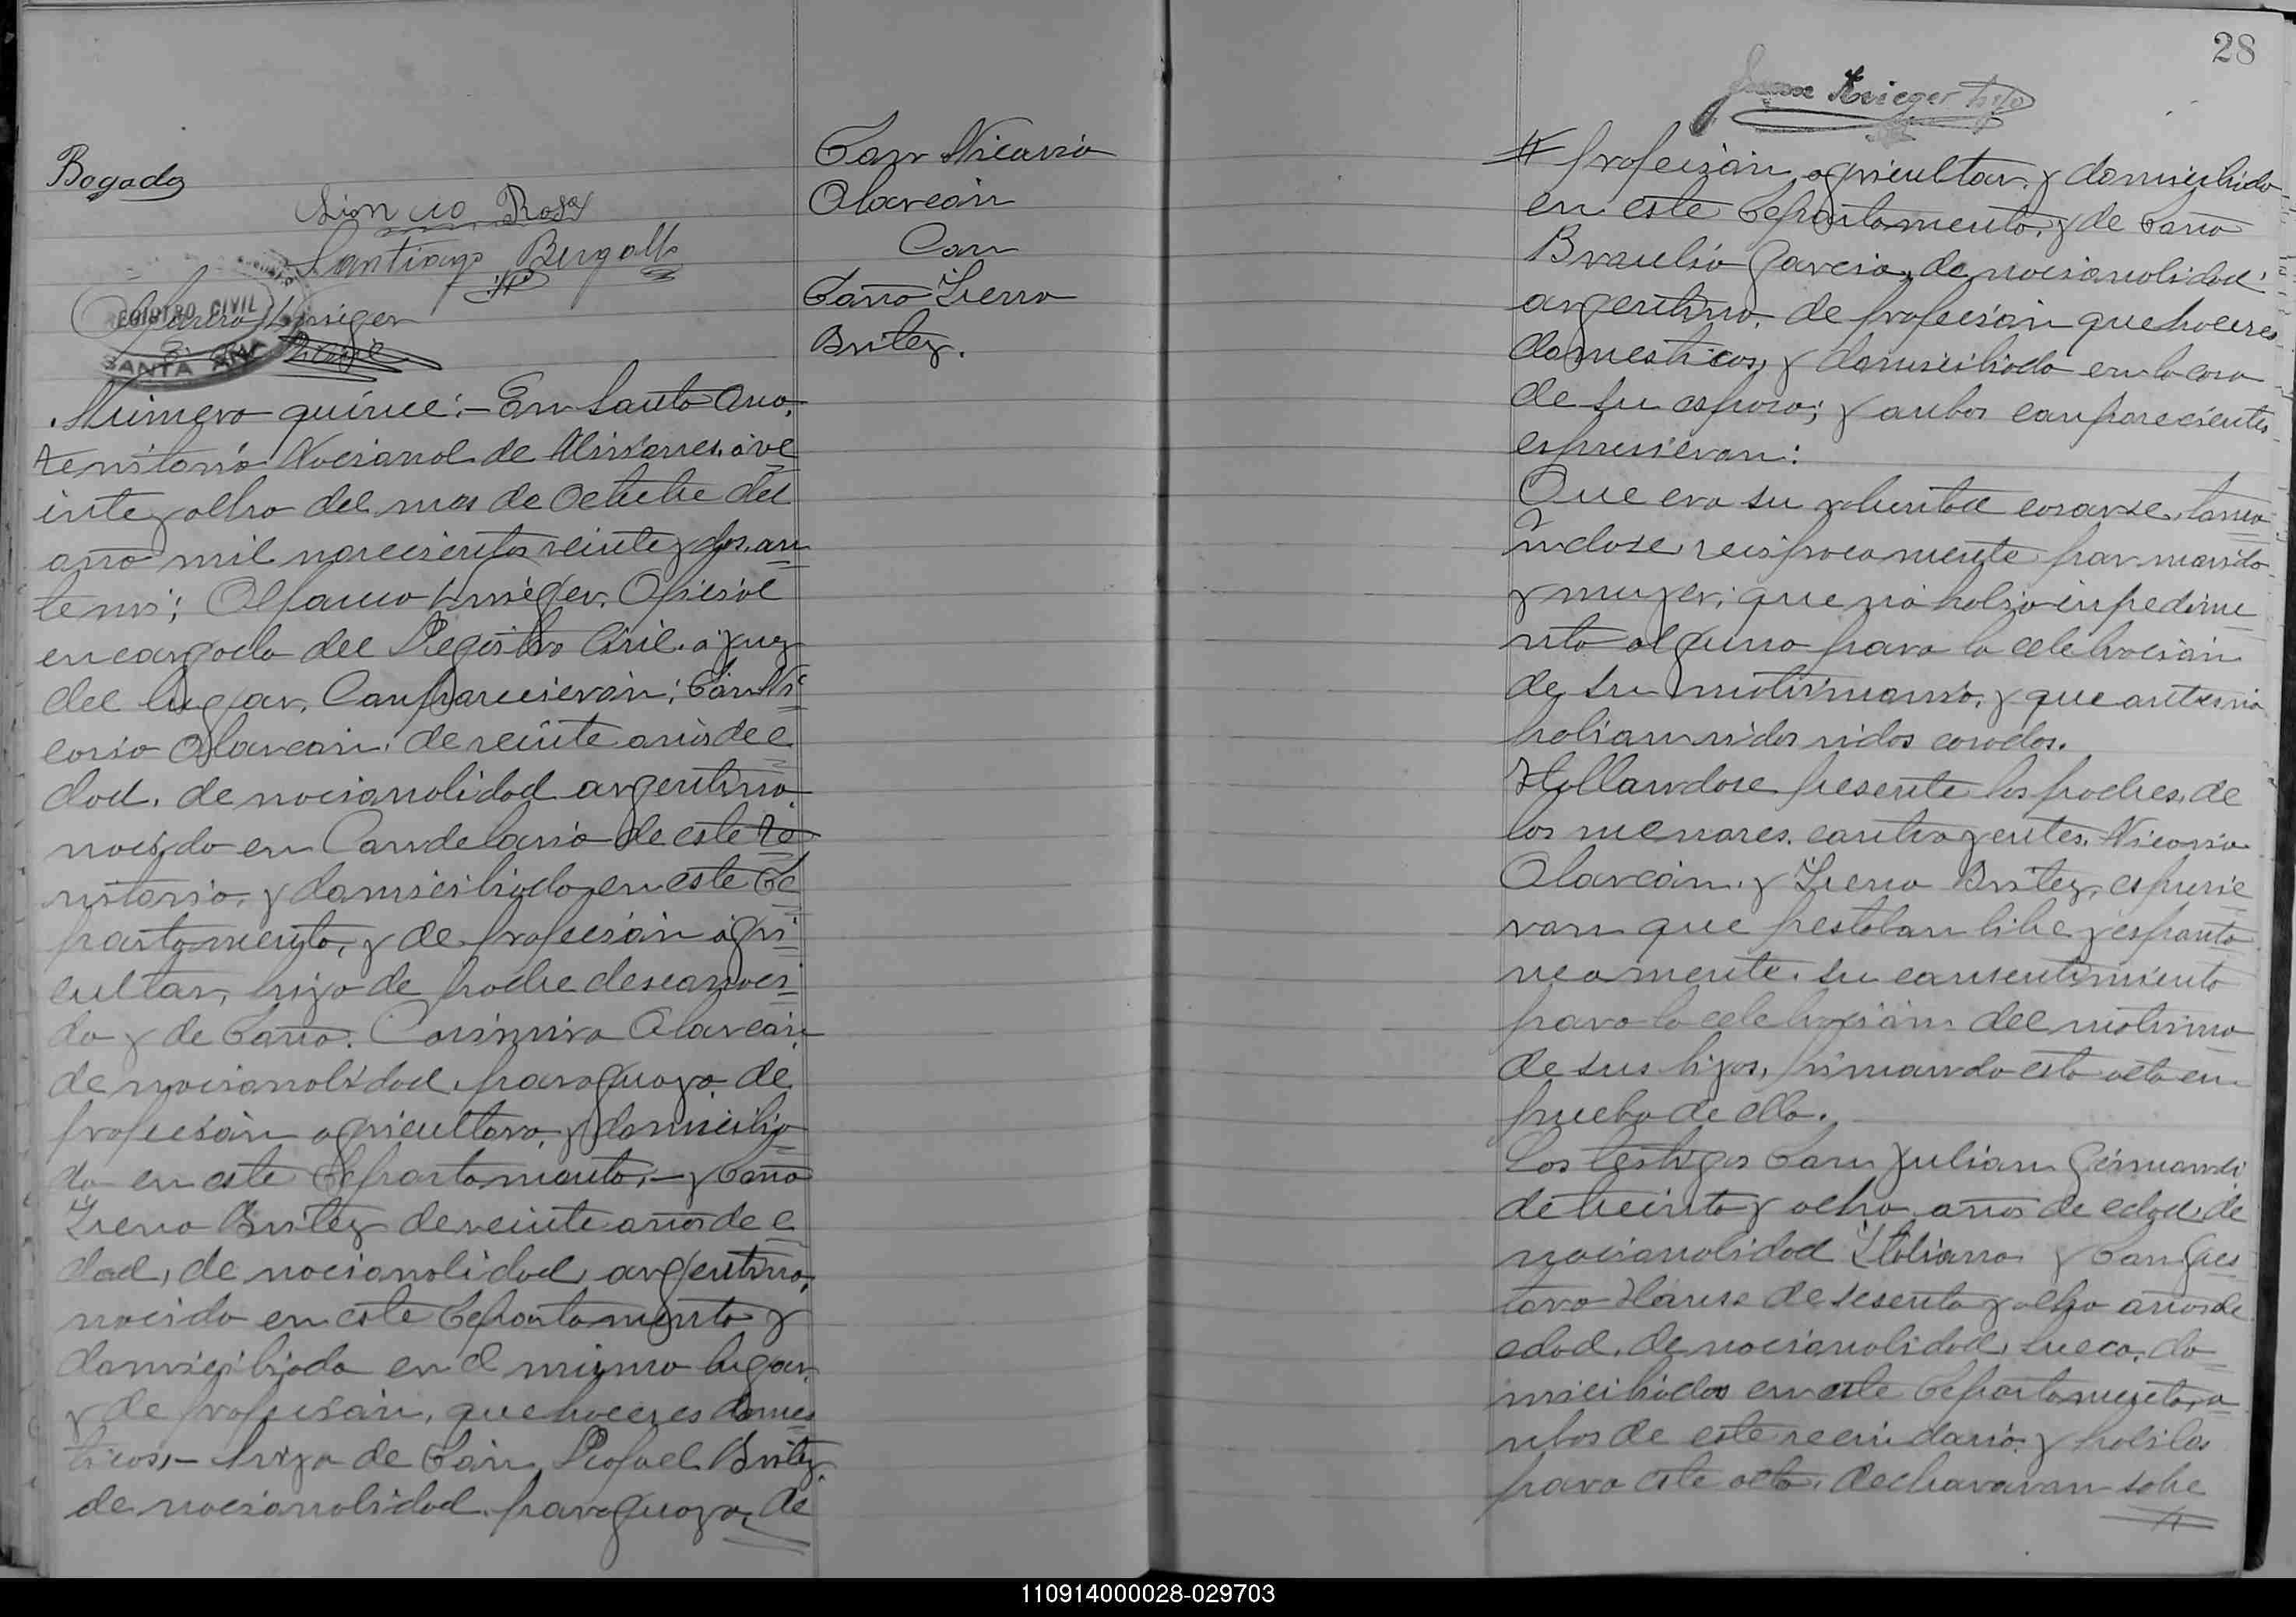 Bogado
Rosa
Santiago Bergallo
REGISTRO CIVIL
SANTA ANA
Número quince:- En Santa Ana,
territorio Nacional de Misiones, á ve
inte y ocho del mes de Octubre del
año mil novecientos veinte y dos, an
te mi; Alfarro Krieger, Oficial
encargado del Registro Civil. a
del lugar, Comparecieron; Don Ni
casio Alarcón, de veinte años de e
dad, de nacionalidad argentino,
nacido en Candelaria de este te
rritorio, y domiciliado en este De
partamento, y de profesión agri
cultor, hijo de padre desconoci
do y de Doña. Casimira Alarcón,
de nacionalidad, paraguaya de
profesión agricultora, y domicilia
da en este Departamento,- y Doña
Irena Britez de veinte años de e
dad, de nacionalidad, argentina,
nacida en este Departamento y
domiciliada en el mismo lugar,
y de profesión, quehaceres domes
ticos,- hija de Don, Rafael Britez,
de nacionalidad, paraguayo, de
Don Nicasio
Alarcón
Con
Doña Irena
Britez.
28
Juan Krieger hijo
profesión agricultor, y domiciliado
en este Departamento, y de Doña
Braulia Garcia, de nacionalidad
argentina, de profesión quehaceres
domesticos, y domiciliada en la casa
de su esposo; y ambos comparecientes
espresieron:
Que era su voluntad casarse, toma
ndose reciprocamente por marido
y mujer; que no habia impedime
nto alguno para la celebración
de su matrimonio, y que antes no
habian sidos casados.
Hallandose presente los padres, de
los menores, contrayentes, Nicasio
Alarcón, y Irena Britez, espresie
ron que prestaban libre y espanta
neamente, su consentimiento
para la celebración del matrimo
de sus hijos, firmando esta acta en
prueba de ello.
Los testigos Don Julian
de treinta y ocho años de edad, de
nacionalidad Italiano y Don Gus
tavo de sesenta y ocho años de
edad, de nacionalidad, sueco, do
miciliados en este Departamento, a
mbos de este vecindario, y habiles
para este acto, declararon sobre
110914000028-029703